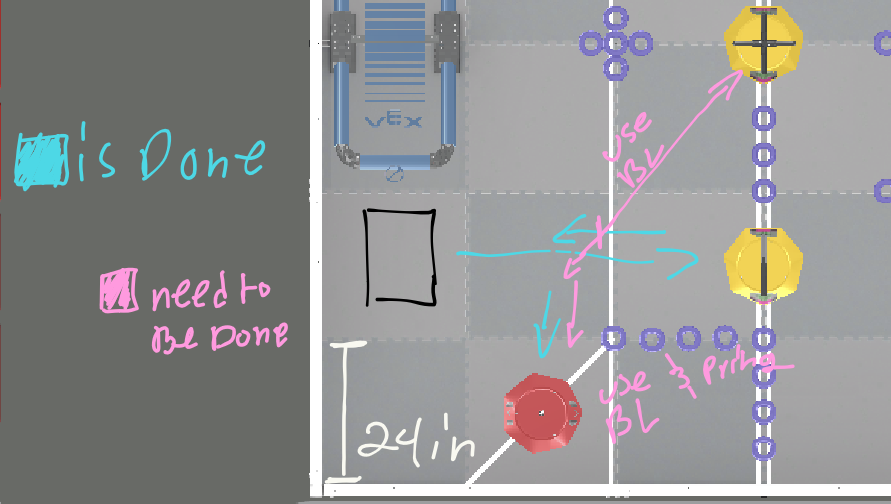 is Done
need to
Be Done
VEX
use
BL
use
BL
& Pring
24in